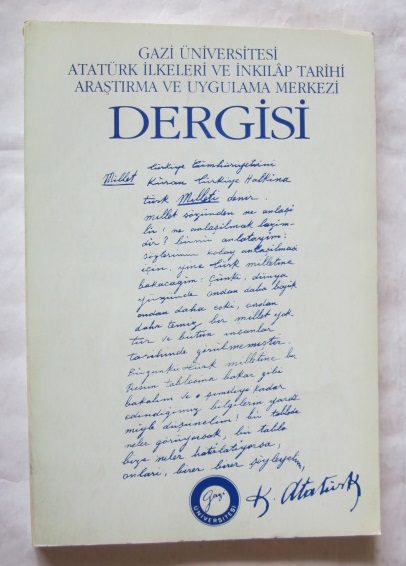 GAZİ ÜNİVERSİTESİ
ATATÜRK İLKELERİ VE İNKILÂP TARİHİ
ARAŞTIRMA VE UYGULAMA MERKEZİ
DERGİSİ
Türkiye Cumhuriyetini
Millet Kuran Türkiye Halkına
Türk Milleti denir.
millet sözünden ne anlaşı
lır? ne anlaşılmak lazım-
dır? bunu anlatayım:
sözlerimi kolay anlaşılması
için, yine türk milletine
bakacağım. Çünkü, dünya
yüzünde ondan daha büyük
ondan daha eski, ondan
daha temiz bir millet yok
tur ve bütün insanlar
tarihinde görülmemiştir.
Bugünkü türk milletine bir
resim tablosuna bakar gibi
bakalım ve şimdiye kadar
edindiğimiz bilgilerin yardı
miyle düşünelim: bu tabloda
neler görüyorsak, bu tablo
bize neler hatırlatıyorsa,
onları, birer birer söyleyelim,
K. Atatürk
Gazi
ÜNİVERSİTESİ